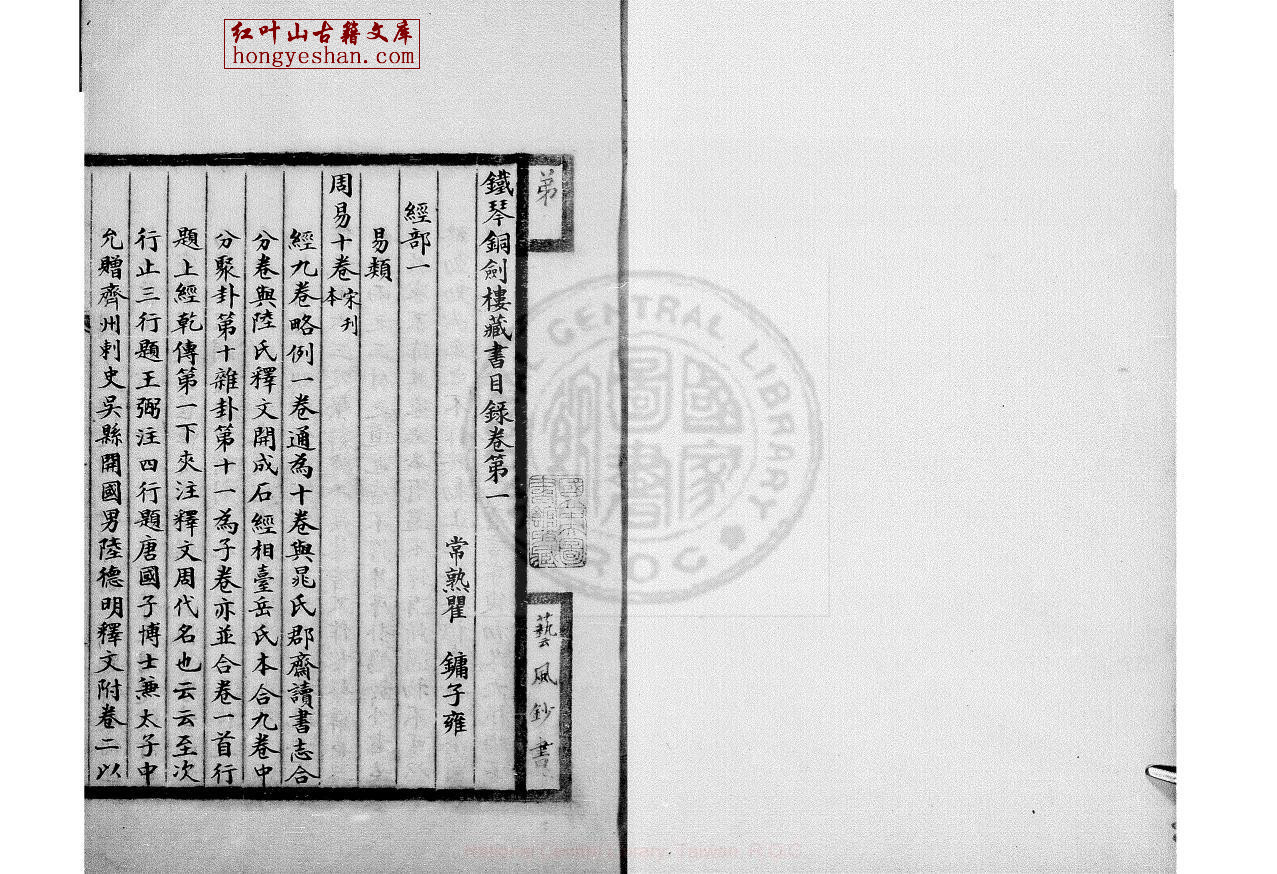 红叶山古籍文库
hongyeshan.com
弟
藝風鈔書
鐵琴銅劍樓藏書目録卷第一
常熟瞿 鏞子雍
經部一
易類
周易十卷宋刊本
經九卷略例一卷通為十卷與晁氏郡齋讀書志合
分卷與陸氏釋文開成石經相臺岳氏本合九卷中
分聚卦第十雜卦第十一為子卷亦並合卷一首行
題上經乾傳第一下夾注釋文周代名也云云至次
行止三行題王弼注四行題唐國子博士兼太子中
允贈齊州刺史吳縣開國男陸德明釋文附卷二以
CENTRAL LIBRARY
R O C
國家圖書館
國立中央圖書館收藏
National Central Library, Taiwan, R.O.C